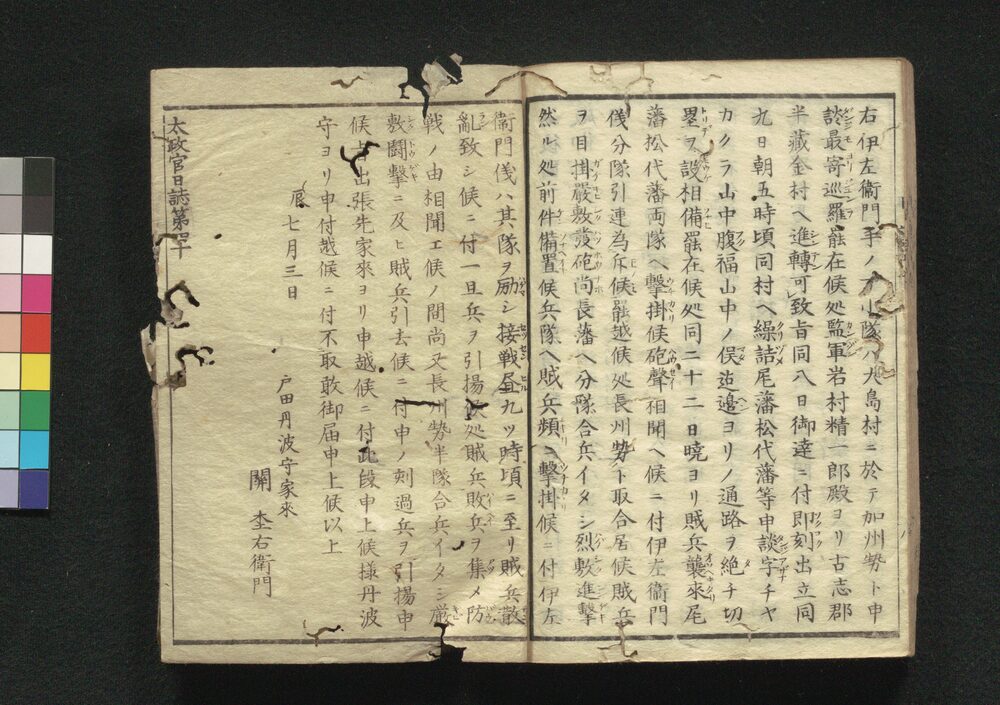 右伊左衞門手ノ大小隊ハ大島村ニ於テ加州勢ト申
談最寄巡羅罷在候処監軍岩村精一郎殿ヨリ古志郡
半藏金村ヘ進轉可致旨同八日御達ニ付即刻出立同
九日朝五時頃同村ヘ繰詰尾藩松代藩等申談字チヤ
カクラ山中腹福山中ノ俣辺邊ヨリノ通路ヲ絶チ切
塁ヲ設相備罷在候処同二十二日曉ヨリ賊兵襲來尾
藩松代藩両隊ヘ擊掛候砲聲相聞ヘ候ニ付伊左衞門
儀分隊引連為斥候罷越候処長州勢ト取合居候賊兵
ヲ目掛嚴敷發砲尚長藩ヘ分隊合兵イタシ烈敷進擊
然ル処前件備置候兵隊ヘ賊兵頻ニ擊掛候ニ付伊左
衞門儀ハ其隊ヲ励シ接戦昼九ツ時頃ニ至リ賊兵散
亂致シ候ニ付一旦兵ヲ引揚候処賊兵敗兵ヲ集メ防
戦ノ由相聞エ候ノ間尚又長州勢半隊合兵イタシ厳
敷闘擊ニ及ヒ賊兵引去候ニ付申ノ刻過兵ヲ引揚申
候 出張先家來ヨリ申越候ニ付此段申上候様丹波
守ヨリ申付越候ニ付不取敢御届申上候以上
辰七月三日
戸田丹波守家來
關 杢右衞門
太政官日誌第四十